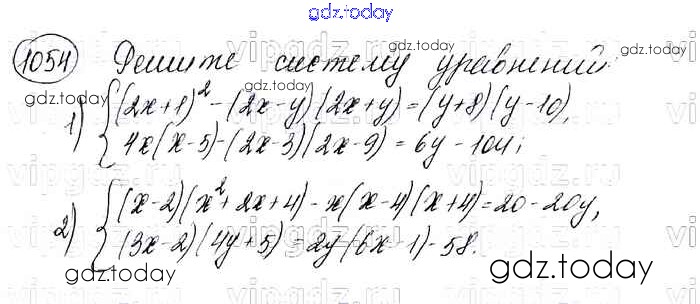 gdz.today
1054 Решите систему уравнений
1) { (2x+1)² - (2x-y)(2x+y) = (y+8)(y-10),
4x(x-5) - (2x-3)(2x-9) = 6y - 104;
2) { (x-2)(x²+2x+4) - x(x-4)(x+4) = 20 - 20y,
(3x-2)(4y+5) = 2y(6x-1) - 58.
gdz.today